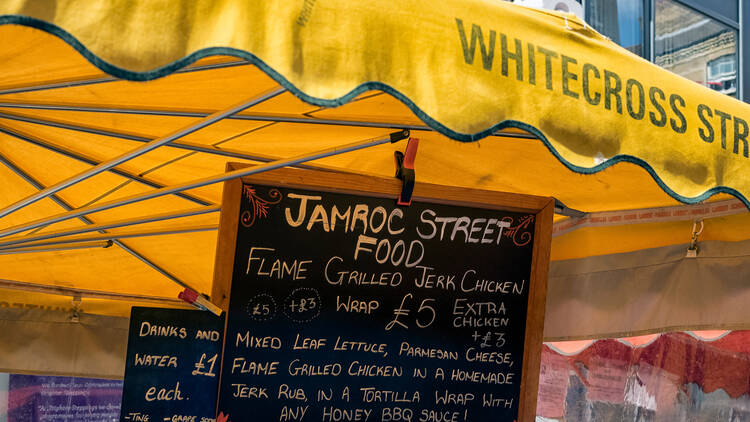 WHITECROSS STR
JAMROC STREET
FOOD
FLAME GRILLED JERK CHICKEN
£5 +£3 WRAP £5 EXTRA
CHICKEN
+£3
MIXED LEAF LETTUCE, PARMESAN CHEESE,
FLAME GRILLED CHICKEN IN A HOMEMADE
JERK RUB, IN A TORTILLA WRAP WITH
ANY HONEY BBQ SAUCE!
DRINKS AND
WATER £1
each.
-TING -GRAPE SODA
WHITECROSS